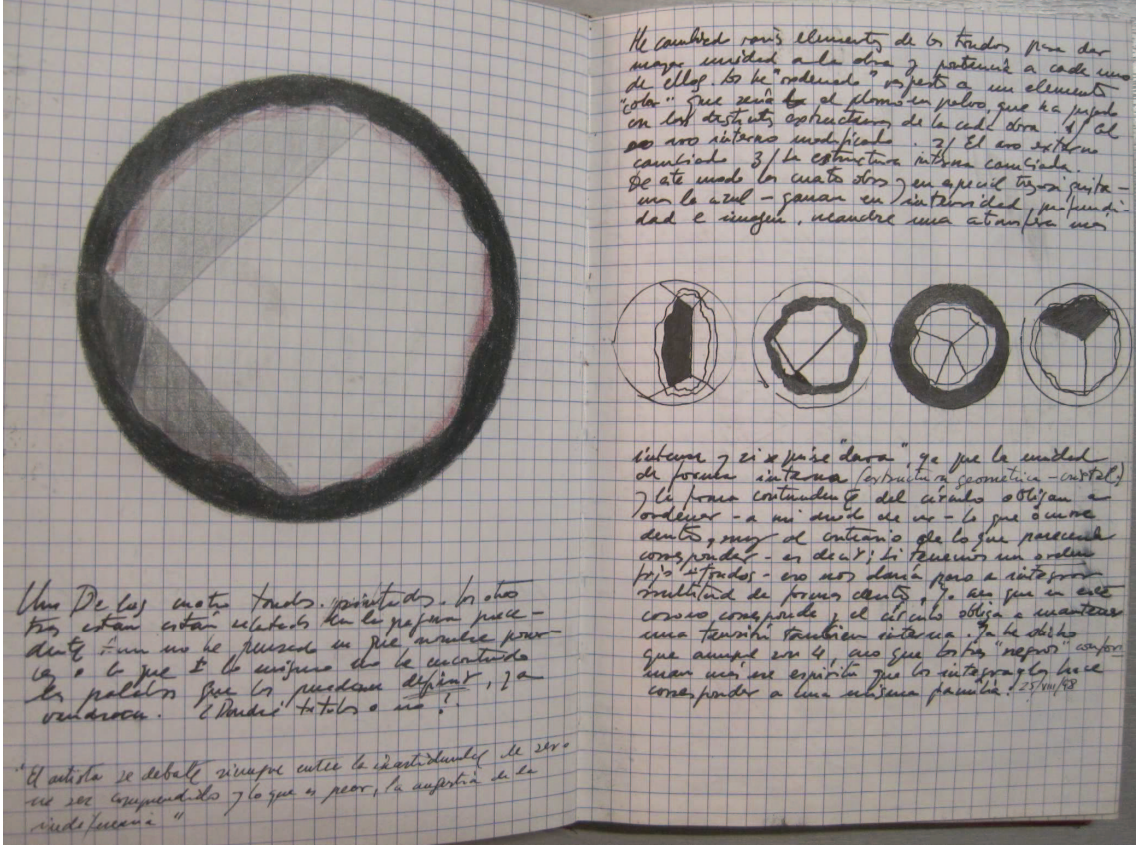 Una De las cuatro tondos. pintados. los otros
tres estan estan relatados en la pagina prece-
dente - aun no he pensado en que nombre poner
les o lo que I lo mismo no he encontrado
las palabras que los puedan definir, ya
vendrán. ¿Pondré titulos o no?.
"El artista se debate siempre entre la incertidumbre de ser o
no ser comprendido y lo que es peor, la angustia de la
indiferencia"
He cambiado varios elementos de los tondos para dar
mayor unidad a la obra y potencia a cada uno
de ellos los he "ordenado" respecto a un elemento
"color" que sería el plomo en polvo, que ha jugado
en las distintas estructuras de la cada obra. 1/ el
aro interno modificado. 2/ El aro externo
cambiado 3/ La estructura interna cambiada.
De este modo las cuatro obras y en especial tres quita-
mos la azul - ganan en intensidad, profundi-
dad e imagen. una atmosfera más
intensa y si se quiere "dura", ya que la unidad
de forma interna (estructura geometrica - cristal)
y la forma contundente del círculo obligan a
ordenar - a mi modo de ver - lo que ocurre
dentro, muy al contrario de lo que pareciera
corresponder - es decir; Si tenemos un orden
fijo - tondos - eso nos daría para a integrar
multitud de formas dentro, Yo creo que en este
caso no corresponde y el círculo obliga a mantener
una tensión tambien interna. Ya he dicho
que aunque son 4, creo que los tres "negros" confor
man más ese espiritu que los integra y los hace
corresponder a una misma familia. 25/VIII/98